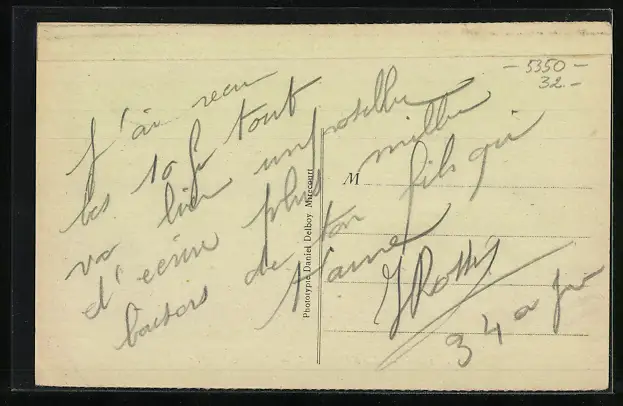 - 5350 -
32.-
J'ai recu
les 10 f tout
va bien impossible
d'ecrire plus mille
baisers de ton fils qui
t'aime
M
Phototypie Daniel Delboy, Mirecourt